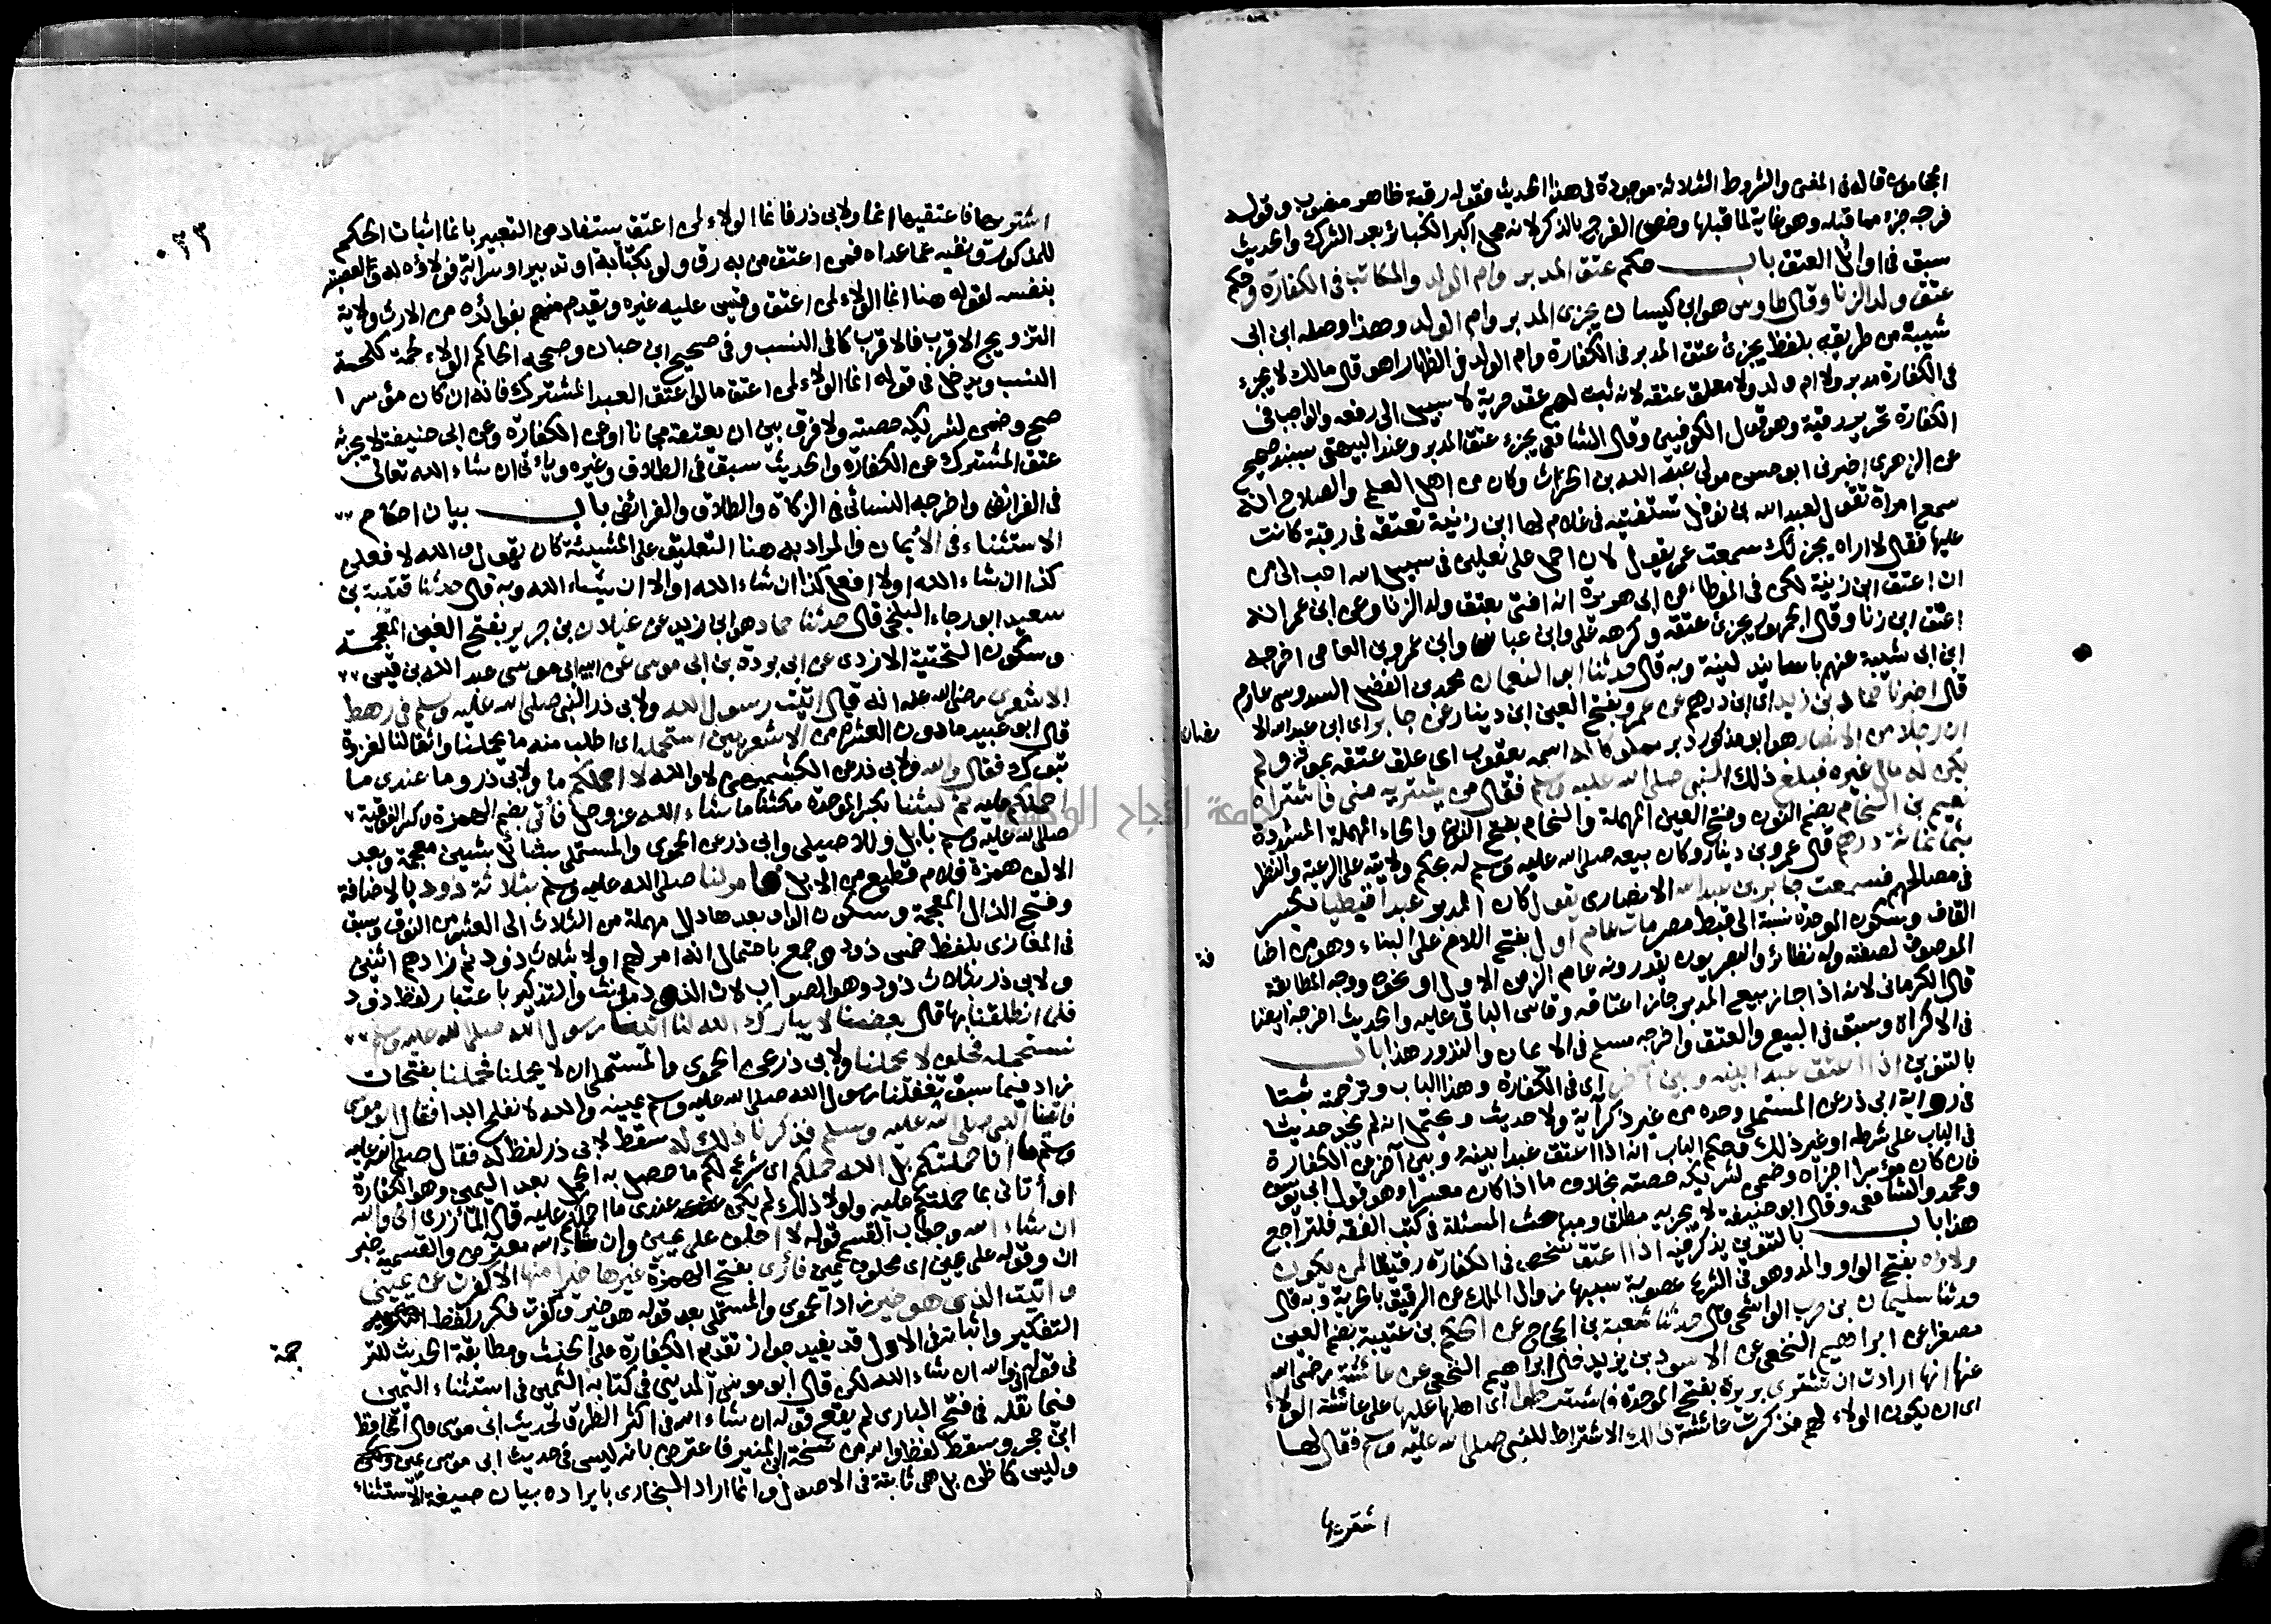 المجاموري قاله في المغني والشروط الثلاثة موجودة في هذا الحديث فقوله رقبة ظاهر منصوب وقوله
فرجه جزء مما قبله وهو غاية لما قبلها وخص الفرج بالذكر لانه محل اكبر الكبائر بعد الشرك والحديث
سبق في اوائل العتق باب حكم عتق المدبر وام الولد والمكاتب في الكفارة وحكم
عتق ولد الزنا وقال طاوس هو ابن كيسان يجزى المدبر وام الولد وهذا وصله ابن ابي
شيبة من طريقه بلفظ يجزئ عتق المدبر في الكفارة وام الولد في الظهار اهو قال مالك لا يجزء
في الكفارة مدبر ولا ام ولد ولا معلق عتقه لانه ثبت لهم عقد حرية لا سبيل الى رفعه والواجب في
الكفارة تحرير رقبة وهو قول الكوفيين وقال الشافعي يجزء عتق المدبر وعند البيهقي بسند صحيح
عن الزهري اخبرني ابو حسن مولى عبد الله بن الحارث وكان من اهل العلم والصلاح انه
سمع امراة تقول لعبد الله بن نوفل تستفتيه في غلام لها ابن زنية تعتقه في رقبة كانت
عليها فقال لا اراه يجزئك سمعت عمر يقول لان احمل على نعلين في سبيل الله احب الي من
ان اعتق ابن زنية لكن في الموطا عن ابي هريرة انه افتى بعتق ولد الزنا وعن ابن عمر انه
اعتق ابن زنا وقال الجمهور يجزئ عتقه وكرهه علي وابن عباس وابن عمرو بن العاصي اخرجه
ابن ابي شيبة عنهم باسانيد لينة وبه قال حدثنا ابو النعمان محمد بن الفضل السدوسي عارم
قال اخبرنا حماد بن زيد اي ابن درهم عن عمرو بفتح العين ابن دينار عن جابر اي ابن عبد الله الا نصاري
ان رجلا من الانصار هو ابو مذكور دبر مملوكا له اسمه يعقوب اي علق عتقه بموته ولم
يكن له مال غيره فبلغ ذلك النبي صلى الله عليه وسلم فقال من يشتريه مني فاشتراه
نعيم بن النحام بضم النون وفتح العين المهملة والنحام بفتح النون والحاء المهملة المشددة
بثمانمائة درهم قال عمرو بن دينار وكان بيعه صلى الله عليه وسلم له بحكم ولايته على الرعية والنظر
في مصالحهم فسمعت جابر بن عبد الله الانصاري يقول كان المدبر عبدا قبطيا بكسر
القاف وسكون الموحدة نسبة الى قبط مصر مات عام اول بفتح اللام على البناء وهو من اضا فة
الموصوف لصفته وله نظائر والبصريون يقدرونه عام الزمن الاول او نحوه ووجه المطابقة
قال الكرماني لانه اذا جاز بيع المدبر جاز اعتاقه وقاس الباقي عليه والحديث اخرجه ايضا
في الاكراه وسبق في البيع والعتق واخرجه مسلم في الايمان والنذور هذا باب
بالتنوين اذا اعتق عبدا بينه وبين آخر اي في الكفارة وهذا الباب وترجمته ثبتا
في رواية ابي ذر عن المستملي وحده من غير ذكر آية ولا حديث ويحتمل انه لم يجد حديثا
في الباب على شرطه او غير ذلك فحكم الباب انه اذا اعتق عبدا بينه وبين آخر من الكفارة
فان كان موسرا اجزاه وضمن لشريكه حصته بخلاف ما اذا كان معسرا وهو قول ابي يوسف
ومحمد والشافعي وقال ابو حنيفة لا يجزيه مطلقا ومباحث المسئلة في كتب الفقه فلتراجع
هذا باب بالتنوين يذكر فيه اذا اعتق شخص في الكفارة رقيقا لمن يكون
ولاؤه بفتح الواو والمد وهو في الشرع عصوبة سببها زوال الملك عن الرقيق بالحرية وبه قال
حدثنا سليمان بن حرب الواشحي قال حدثنا شعبة بن الحجاج عن الحكم بن عتيبة بضم العين
مصغرا عن ابراهيم النخعي عن الاسود بن يزيد خال ابراهيم النخعي عن عائشة رضي الله
عنها انها ارادت ان تشتري بريرة بفتح الموحدة فاشترطوا اي اهلها عليها على عائشة الولاء
اي ان يكون الولاء لهم فذكرت عائشة ذلك الاشتراط للنبي صلى الله عليه وسلم فقال لها
اشتريها
اشتريها فاعتقيها انما ولابي ذر فانما الولاء لمن اعتق يستفاد من التعبير بانما اثبات الحكم
للمذكور ونفيه عما عداه فمن اعتق من به رق ولو بكتابة او تدبير او سراية فولاؤه له
بنفسه لقوله هنا انما الولاء لمن اعتق وقيس عليه غيره ويقدم منهم بفوائده من الارث وولاية
التزويج الاقرب فالاقرب كما في النسب وفي صحيح ابن حبان وصححه الحاكم الولاء لحمة كلحمة
النسب ويدخل في قوله انما الولاء لمن اعتق ما لو اعتق العبد المشترك فانه ان كان موسرا
صح وضمن لشريكه حصته ولا فرق بين ان يعتقه مجانا او عن الكفارة وعن ابي حنيفة لا يجزئه
عتق المشترك عن الكفارة والحديث سبق في الطلاق وغيره وياتي ان شاء الله تعالى
في الفرائض واخرجه النسائي في الزكاة والطلاق والفرائض باب بيان احكام
الاستثناء في الأيمان والمراد به هنا التعليق على المشيئة كان يقول والله لافعلن
كذا ان شاء الله او لا افعل كذا ان شاء الله او الا ان يشاء الله وبه قال حدثنا قتيبة بن
سعيد ابو رجاء البلخي قال حدثنا حماد هو ابن زيد عن غيلان بن جرير بفتح الغين المعجمة
وسكون التحتية الازدي عن ابي بردة بن ابي موسى عن ابيه ابي موسى عبد الله بن قيس
الاشعري رضي الله عنه انه قال اتيت رسول الله ولابي ذر النبي صلى الله عليه وسلم في رهط
قال ابو عبيد ما دون العشرة من الاشعريين استحمله اي اطلب منه ما يحملنا واثقالنا لغزوة
تبوك فقال والله ولابي ذر عن الكشميهني لا والله لا احملكم ما ولابي ذر وما عندي ما
احملكم عليه ثم لبثنا بكسر الموحدة مكثنا ما شاء الله عز وجل فأتي بضم الهمزة وكسر الفوقية
صلى الله عليه وسلم بابل وللاصيلي وابي ذر عن الحموي والمستملي بشائل بشين معجمة وبعد
الالف همزة فلام قطيع من الابل فامر لنا صلى الله عليه وسلم بثلاثة ذود بالاضافة
وفتح الذال المعجمة وسكون الواو بعدها دال مهملة من الثلاث الى العشر من النوق وسبق
في المغازي بلفظ خمس ذود وجمع باحتمال انه امر لهم اولا بثلاث ذود ثم زادهم اثنين
ولابي ذر بثلاث ذود وهو الصواب لان الذود مؤنث والتذكير باعتبار لفظ ذود
فلما انطلقنا بها قال بعضنا لا يبارك الله لنا اتينا رسول الله صلى الله عليه وسلم
نستحمله فحلف لا يحملنا ولابي ذر عن الحموي والمستملي ان لا يحملنا فحملنا بفتحات
زاد فيما سبق تغفلنا رسول الله صلى الله عليه وسلم يمينه والله لا نفلح ابدا فقال ابو موسى
فاتينا النبي صلى الله عليه وسلم فذكرنا ذلك له سقط لابي ذر لفظ له فقال صلى الله عليه
وسلم ما انا حملتكم بل الله حملكم اي شرع لكم ما حصل به الحمل بعد اليمين وهو الكفارة
او أتاني بما حملتكم عليه ولولا ذلك لم يكن عندي ما احملكم عليه قاله المازري اني والله
ان شاء الله وجواب القسم قوله لا احلف على يمين وان شاء الله معترض والقسمية خبر
ان وقوله على يمين اي محلوف يمين فأرى بفتح الهمزة غيرها خيرا منها الا كفرت عن يميني
واتيت الذي هو خير زاد الحموي والمستملي بعد قوله هو خير وكفرت فكرر لفظ
التكفير واثباته في الاول قد يفيد جواز تقدم الكفارة على الحنث ومطابقة الحديث للتر جمة
في قوله اني والله ان شاء الله لكن قال ابو موسى المديني في كتابه الثمين في استثناء اليمين
فيما نقله في فتح الباري لم يقع قوله ان شاء الله في اكثر الطرق لحديث ابي موسى قال الحافظ
ابن حجر وسقط لفظ والله من نسخة ابن المنير فاعترض بانه ليس في حديث ابي موسى يمين
وليس كما ظن بل هي ثابتة في الاصول وانما اراد البخاري بايراده بيان صيغة الاستثناء